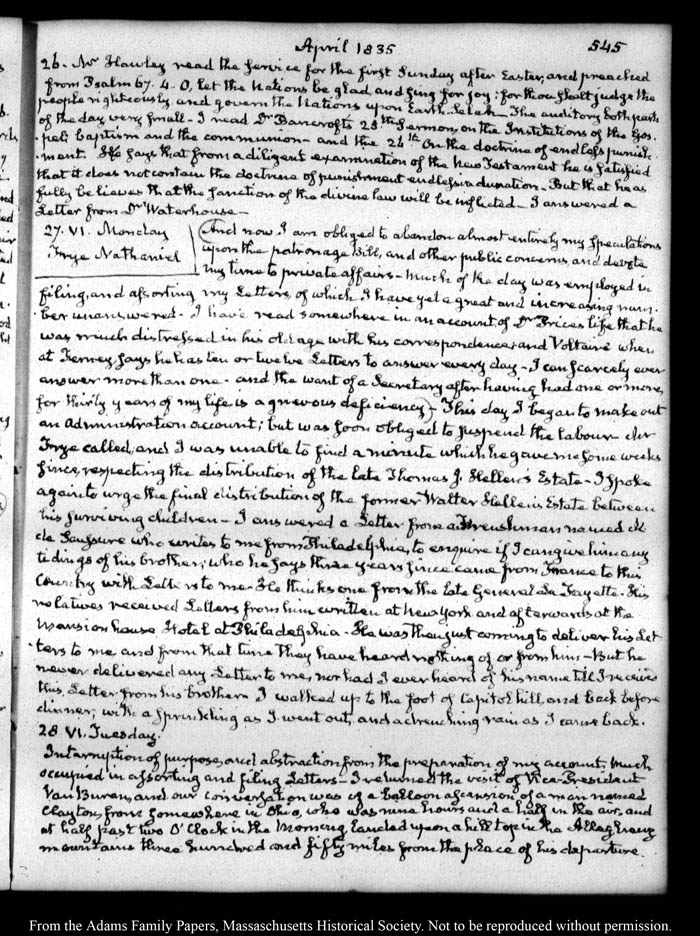 April 1835 545
26. Mr Hawley read the service for the first Sunday after Easter, and preached
from Psalm 67. 4. O, let the Nations be glad, and sing for joy; for thou shalt judge the
people righteously, and govern the Nations upon Earth. Selah — The auditory both parts
of the day very small — I read Dr Bancroft's 25th Sermon, on the Institutions of the Gos-
pel; baptism and the communion — and the 26th On the doctrine of endless punish-
ment. He says that from a diligent examination of the New Testament he is satisfied
that it does not contain the doctrine of punishment endless in duration — But that he as
fully believes that the sanction of the divine law will be inflicted — I answered a
Letter from Dr Waterhouse —
27. VI. Monday
Frye Nathaniel
And now I am obliged to abandon almost entirely my speculations
upon the patronage Bill, and other public concerns, and devote
my time to private affairs — Much of the day was employed in
filing, and assorting my Letters, of which I have yet a great and increasing num-
ber unanswered — I have read somewhere in an account of Dr Price's life that he
was much distressed in his old age with his correspondence; and Voltaire when
at Ferney, says he has ten or twelve Letters to answer every day — I can scarcely ever
answer more than one — and the want of a Secretary after having had one or more,
for thirty years of my life is a grievous deficiency — This day I began to make out
an Administration account; but was soon obliged to suspend the labour — Mr
Frye called, and I was unable to find a minute which he gave me some weeks
since, respecting the distribution of the late Thomas J. Hellen's Estate — I spoke
again to urge the final distribution of the former Walter Hellen's Estate between
his surviving children — I answered a Letter from a Frenchman named
de Saussure who writes to me from Philadelphia, to enquire if I can give him any
tidings of his brother, who he says three years since came from France to this
Country with Letters to me — He thinks one from the late General La Fayette — His
relatives received Letters from him written at New York and afterwards at the
Mansion house Hotel at Philadelphia — He was then just coming to deliver his Let-
ters to me and from that time they have heard nothing of or from him — But he
never delivered any Letter to me, nor had I ever heard of his name till I received
this Letter from his brother. I walked up to the foot of Capitol hill and back before
dinner, with a sprinkling as I went out, and a drenching rain as I came back.
28 VI. Tuesday.
Interruption of purpose, and abstraction from the preparation of my account. Much
occupied in assorting and filing Letters — I returned the visit of Vice-President
Van Buren, and our conversation was of a balloon ascension of a man named
Clayton, from somewhere in Ohio, who was nine hours and a half in the air, and
at half past two O'Clock in the Morning landed upon a hill top in the Alleghany
mountains three hundred and fifty miles from the place of his departure.
From the Adams Family Papers, Massachusetts Historical Society. Not to be reproduced without permission.